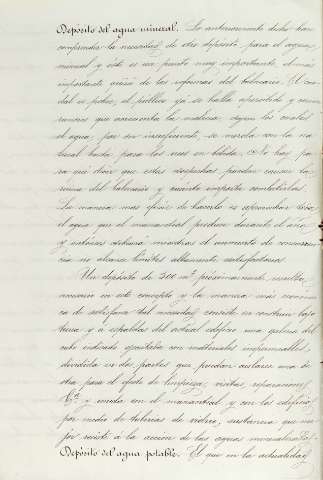 Depósito del agua mineral. Lo anteriormente dicho hace
comprender la necesidad de otro depósito para el agua
mineral y éste es un punto muy importante, el más
importante quizá de las reformas del balneario. El cau-
dal es pobre, el público ya se halla apercibido y
que acrecienta la malicia, según los cuales
el agua, por ser insuficiente, se mezcla con la na-
tural hasta para los usos en bebida. No hay pa-
ra que decir que estas sospechas pueden causar la
ruina del balneario y cuanto importa combatirlas.
La manera más eficaz de hacerlo es aprovechar toda
el agua que el manantial produce durante el año
y entonces estará mientras el aumento de concurren-
cia no alcance límites altamente satisfactorios.
Un depósito de 300 m³ próximamente, resulta
necesario en este concepto y la manera más económi-
ca de satisfacer tal necesidad, consiste en construir bajo
tierra y á espaldas del actual edificio una galería del
cubo indicado ejecutada con materiales impermeables,
dividida en dos partes que puedan aislarse una de
otra para el efecto de limpieza, visitas, reparaciones
&ª y unida con el manantial y con los edificios
por medio de tuberías de vidrio, sustancia que me-
jor resiste á la acción de las aguas minerales.
Depósito del agua potable. El que en la actualidad